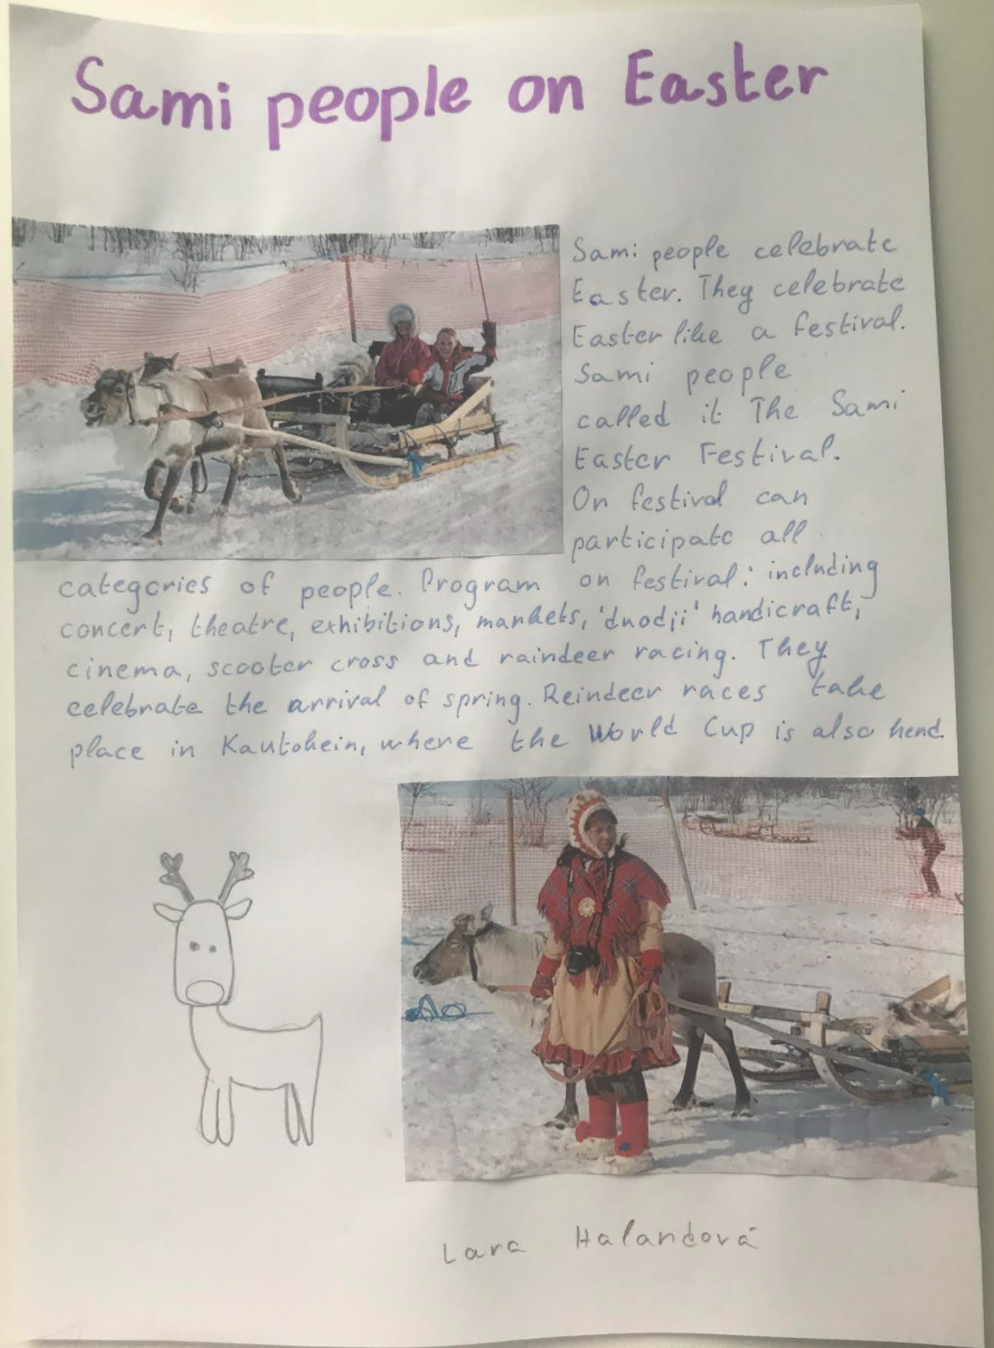 Sami people on Easter
Sami people celebrate
Easter. They celebrate
Easter like a festival.
Sami people
called it The Sami
Easter Festival.
On festival can
participate all
categories of people. Program on festival: including
concert, theatre, exhibitions, markets, 'duodji' handicraft,
cinema, scooter cross and raindeer racing. They
celebrate the arrival of spring. Reindeer races take
place in Kautokein, where the World Cup is also hend.
Lara Halandová